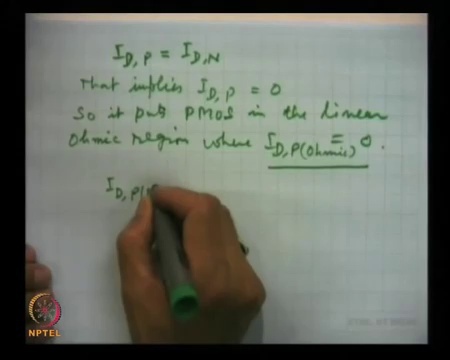 I_D,P = I_D,N
That implies I_D,P = 0
So it puts PMOS in the linear
Ohmic region where I_D,P(Ohmic) = 0.
I_D,P(
NPTEL